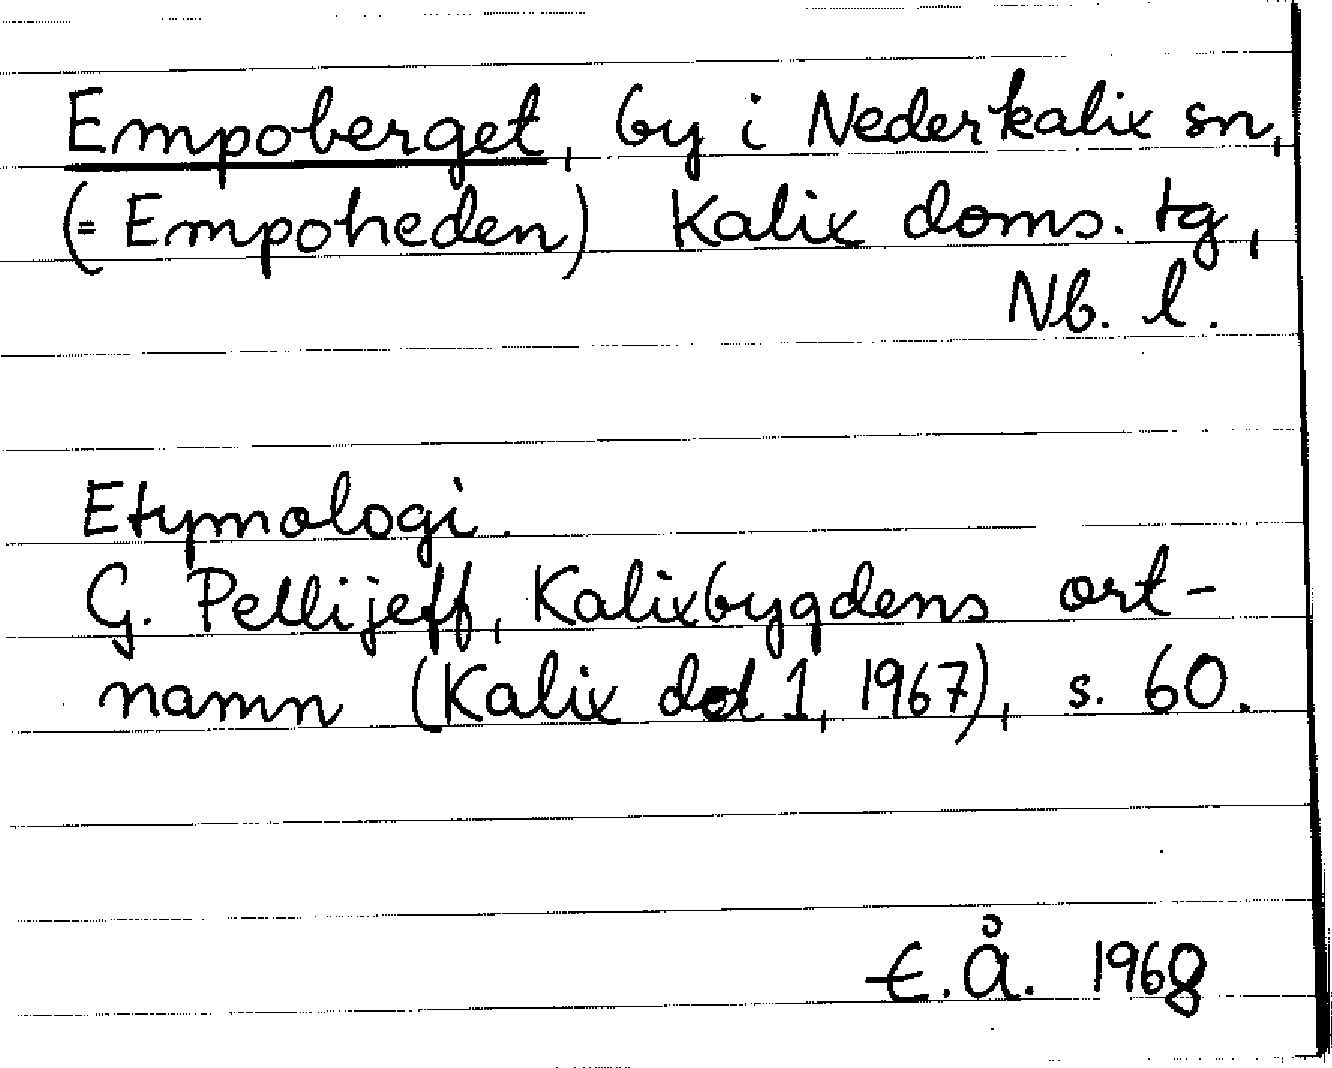 Empoberget, by i Nederkalix sn,
(= Empoheden) Kalix doms. tg,
Nb. l.
Etymologi.
G. Pellijeff, Kalixbygdens ort-
namn (Kalix del 1, 1967), s. 60.
E.Å. 1968